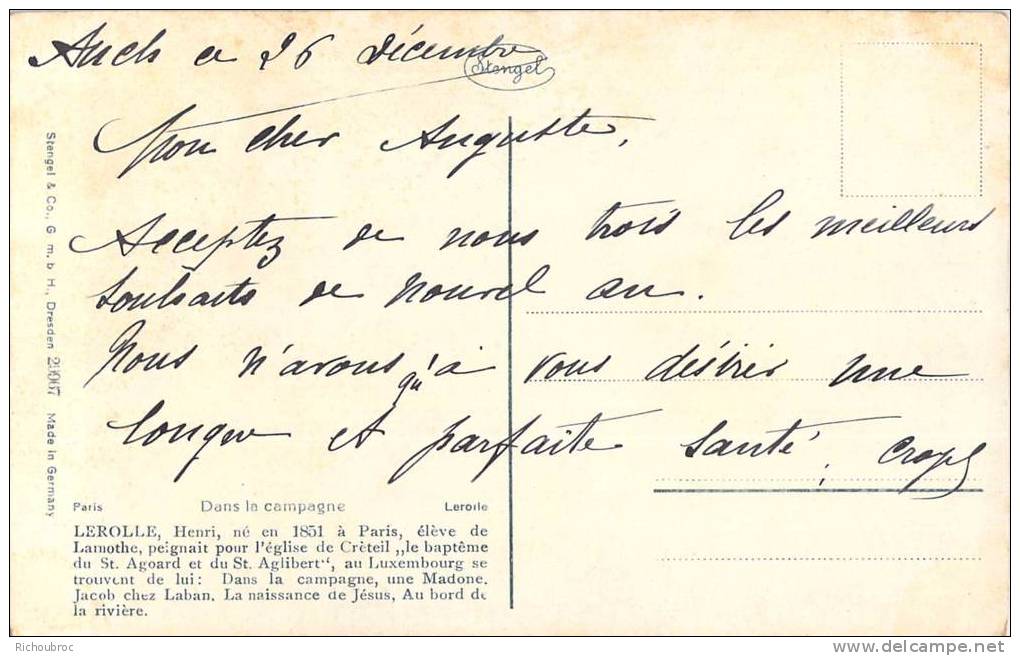 Auch ce 26 Décembre
Stengel
Mon cher Auguste,
Acceptez de nous trois les meilleurs
souhaits de nouvel an.
Nous n'avons qu'à vous désirer une
longue et parfaite santé,
Stengel & Co., G. m. b. H., Dresden 29007 Made in Germany
Paris Dans la campagne Lerolle
LEROLLE, Henri, né en 1851 à Paris, élève de
Lamothe, peignait pour l'église de Crèteil „le baptême
du St. Agoard et du St. Aglibert“, au Luxembourg se
trouvent de lui: Dans la campagne, une Madone.
Jacob chez Laban. La naissance de Jésus, Au bord de
la rivière.
Richoubroc
delcampe.net